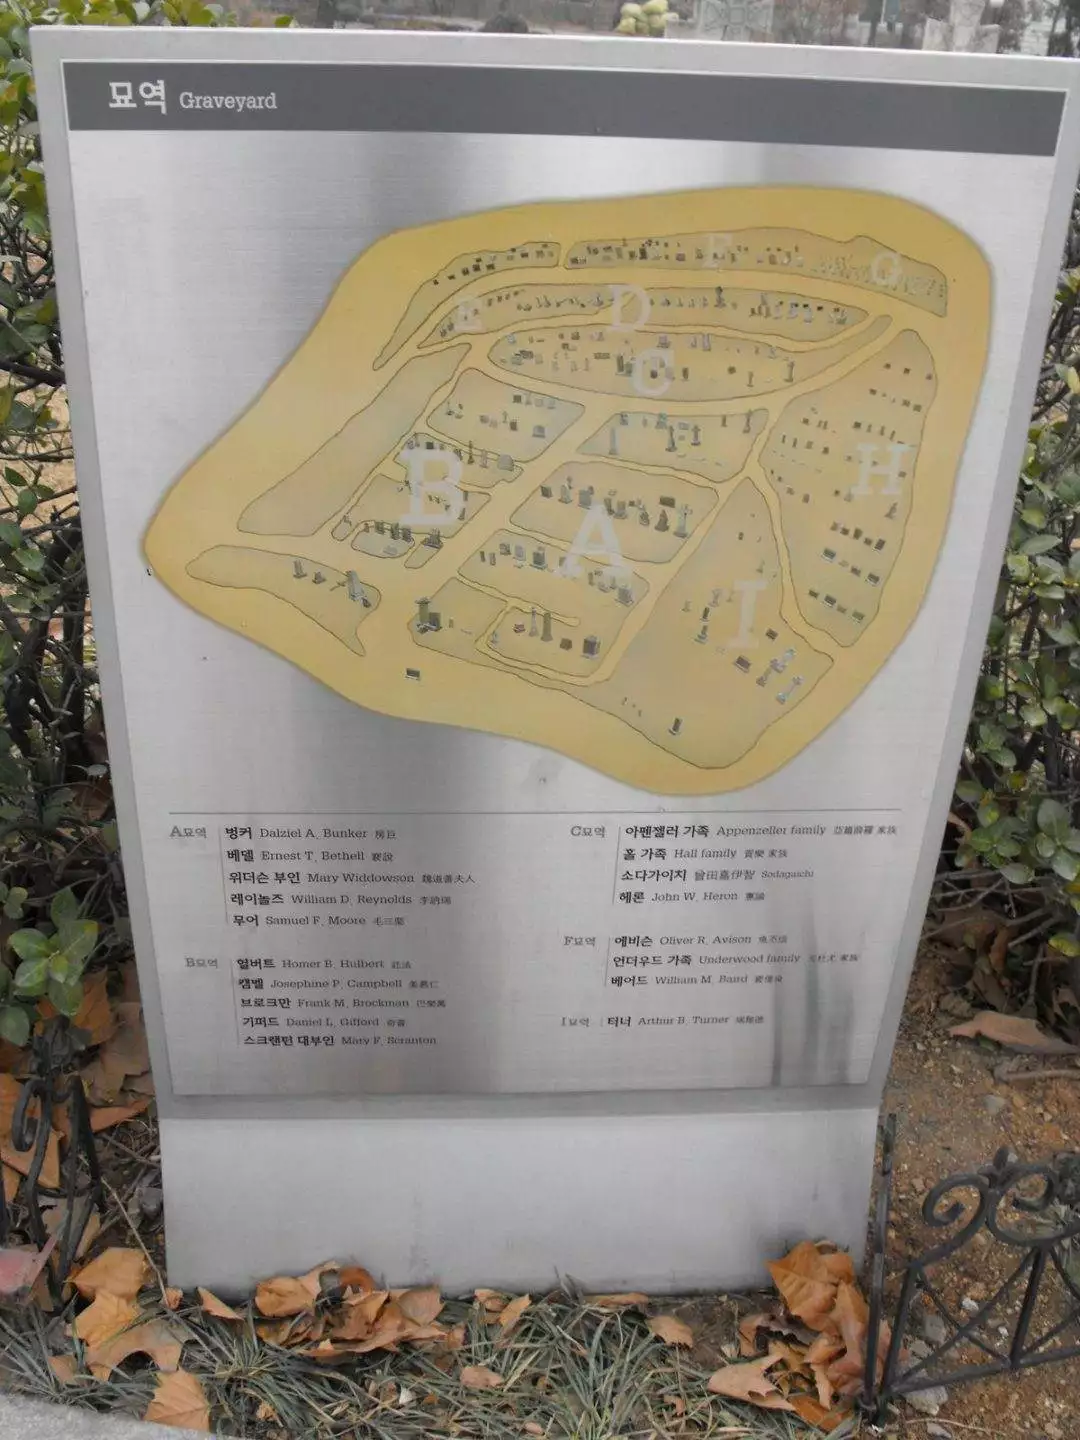 묘역 Graveyard
F
G
E
D
C
B
H
A
I
A묘역 벙커 Dalziel A. Bunker 房巨
베델 Ernest T. Bethell 裵說
위더슨 부인 Mary Widdowson 魏道善夫人
레이놀즈 William D. Reynolds 李訥瑞
무어 Samuel F. Moore 毛三栗
B묘역 헐버트 Homer B. Hulbert 訖法
캠벨 Josephine P. Campbell 姜慕仁
브로크만 Frank M. Brockman 巴樂萬
기퍼드 Daniel L. Gifford 奇普
스크랜턴 대부인 Mary F. Scranton
C묘역 아펜젤러 가족 Appenzeller family 亞扁薛羅 家族
홀 가족 Hall family 賀樂 家族
소다가이치 曾田嘉伊智 Sodagaichi
헤론 John W. Heron 蕙論
F묘역 에비슨 Oliver R. Avison 魚丕信
언더우드 가족 Underwood family 元杜尤 家族
베어드 William M. Baird 裵偉良
I묘역 터너 Arthur B. Turner